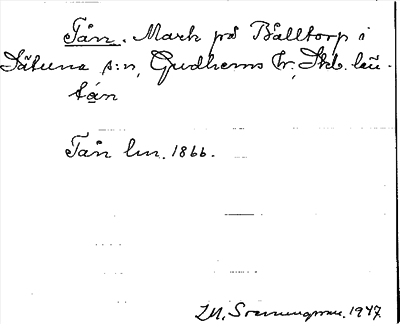 Tån. Mark på Bålltorp i
Sätuna s:n, Gudhems hr, Skb. län.
tån
Tån lm. 1866.
1947.